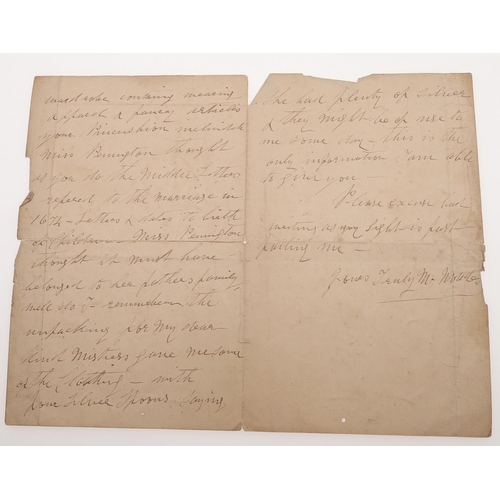 containing wearing
apparel & fancy articles
your
Miss Penington thought
as you do the Middle letter
refered to the marriage in
1674 - Letters & dates to birth
of Children - Miss Penington
thought it must have
belonged to her fathers family
well do I remember the
unpacking for My dear
kind Mistress gave me some
of the Clothing - with
four Silver Spoons, saying
She had plenty of Silver
& they might be of use to
me some day - this is the
only information I am able
to give you
Please excuse bad
writing as my sight is fast
failing me -
Yours Truly M.